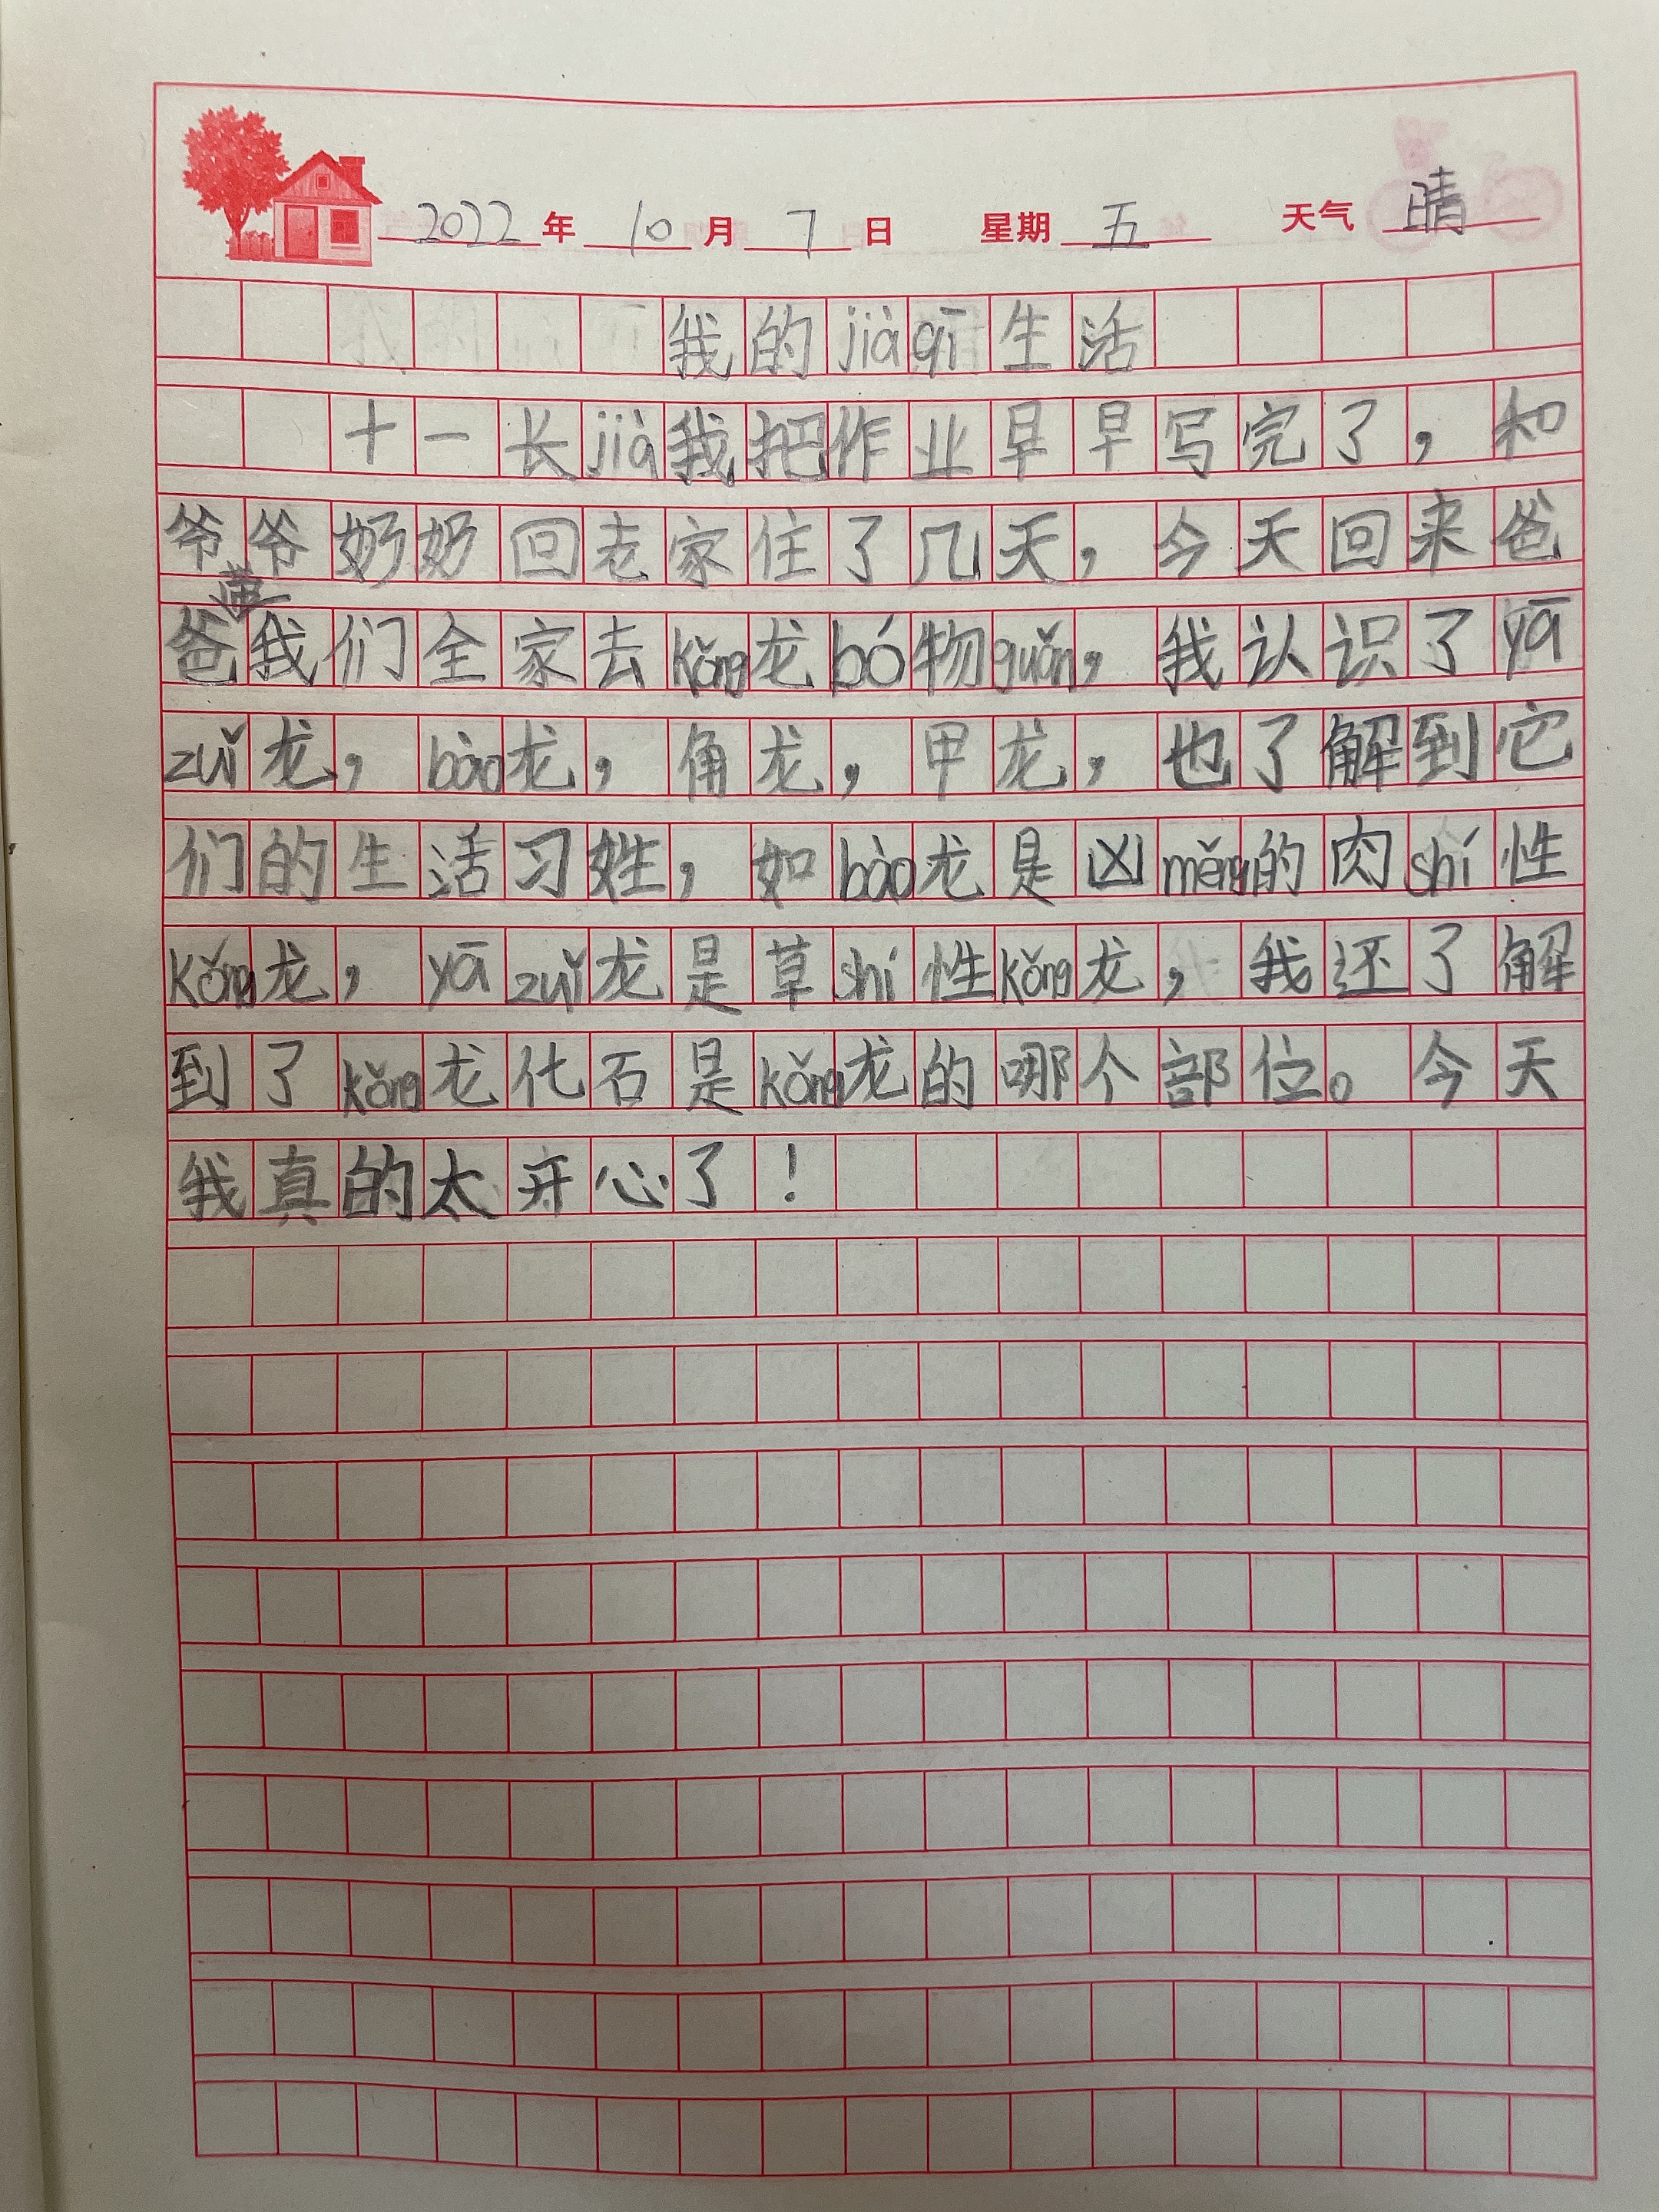 2022年10月7日 星期五 天气晴
我的jiàqī生活
十一长jià我把作业早早写完了，和
爷爷奶奶回老家住了几天，今天回来爸
爸带我们全家去kǒng龙bó物guǎn，我认识了yā
zuǐ龙，bào龙，角龙，甲龙，也了解到它
们的生活习姓，如bào龙是凶měng的肉shí性
kǒng龙，yā zuǐ龙是草shí性kǒng龙，我还了解
到了kǒng龙化石是kǒng龙的哪个部位。今天
我真的太开心了！